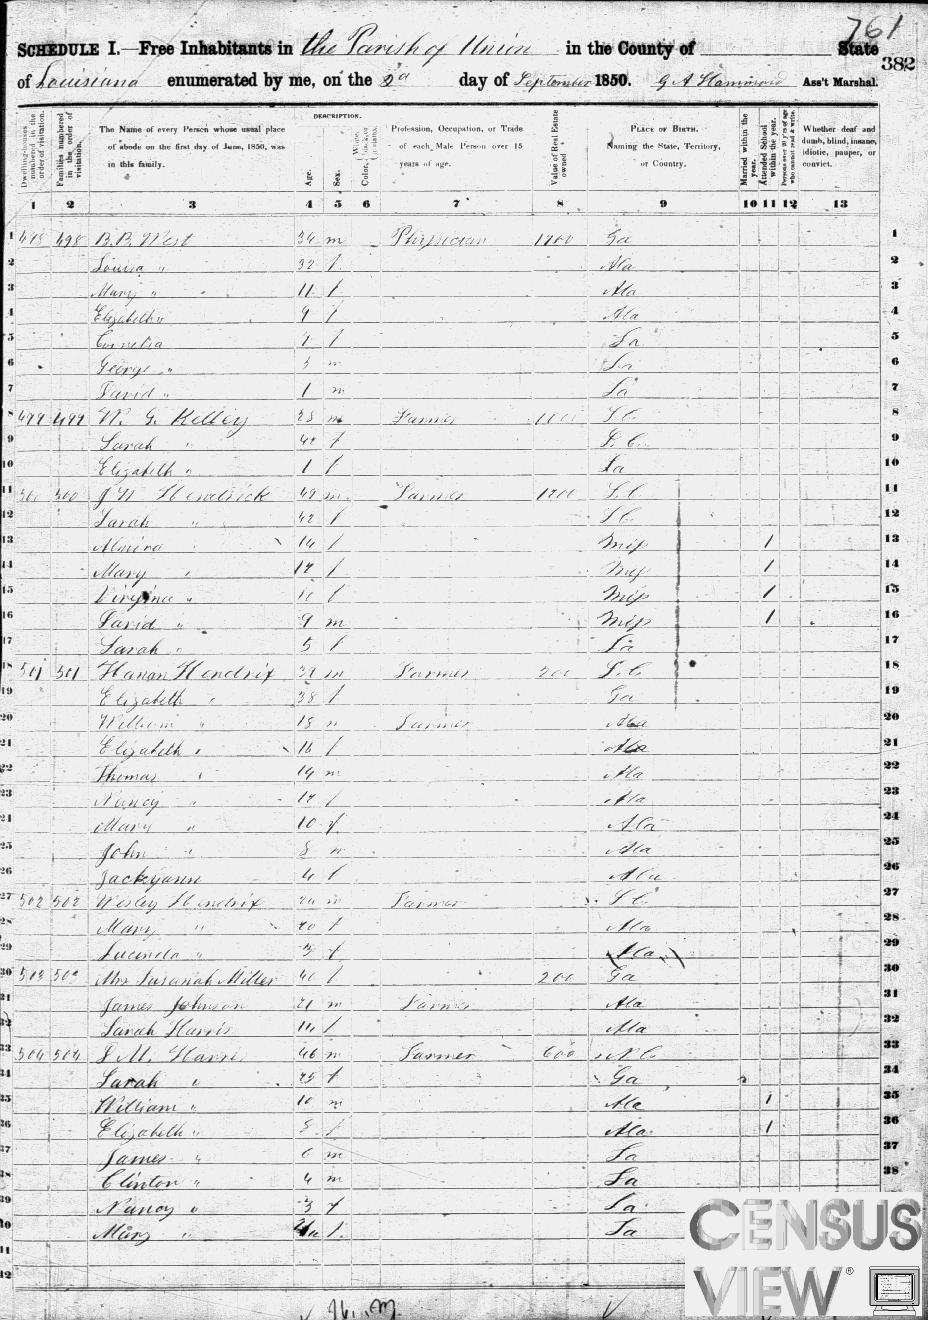 761
SCHEDULE I.—Free Inhabitants in the Parish of Union in the County of State
382
of Louisiana enumerated by me, on the 2d day of September 1850. G A Hammond Ass't Marshal.
Dwelling-houses numbered in the order of visitation.
Families numbered in the order of visitation.
The Name of every Person whose usual place of abode on the first day of June, 1850, was in this family.
DESCRIPTION.
Age.
Sex.
Color,
Profession, Occupation, or Trade of each Male Person over 15 years of age.
Value of Real Estate owned.
PLACE OF BIRTH. Naming the State, Territory, or Country.
Married within the year.
Attended School within the year.
Persons over 20 y'rs of age who cannot read & write.
Whether deaf and dumb, blind, insane, idiotic, pauper, or convict.
1 2 3 4 5 6 7 8 9 10 11 12 13
1 498 B. B. West 34 m Physician Ga 1
2 Louisa " 32 f Ala 2
3 Mary " 11 f Ala 3
4 Elizabeth " 9 f Ala 4
5 Cornelia f La 5
6 George " 3 m La 6
7 David " 1 m La 7
8 499 499 W. G. Kelley m Farmer 1000 S.C. 8
9 Sarah " 42 f S.C. 9
10 Elizabeth " 1 f La 10
11 500 J W Hendrick 49 m Farmer S.C. 11
12 Sarah " 42 f S.C. 12
13 Almira " 14 f Miss 1 13
14 Mary " 12 f Miss 1 14
15 Virginia " f Miss 1 15
16 David " 9 m Miss 1 16
17 Sarah " 5 f La 17
18 501 501 Hanan Hendrix 39 m Farmer 200 S.C. 18
19 Elizabeth " 38 f Ga 19
20 William " 18 m Farmer Ala 20
21 Elizabeth " 16 f Ala 21
22 Thomas " 14 m Ala 22
23 Nancy " 12 f Ala 23
24 Mary " 10 f Ala 24
25 John " 8 m Ala 25
26 Jackyann 4 f Ala 26
27 502 502 Wesley Hendrix m Farmer S.C. 27
28 Mary " 20 f Ala 28
29 Lucinda " 3 f Ala 29
30 503 503 Mrs Susanah Miller 40 f 200 Ga 30
31 James Johnson 21 m Farmer Ala 31
32 Sarah Harris f Ala 32
33 504 504 M. Harris 46 m Farmer 600 N.C. 33
34 Sarah " 25 f Ga 34
35 William " 10 m Ala 1 35
36 Elizabeth " 8 f Ala 1 36
37 James " 6 m La 37
38 Clinton " 4 m La 38
39 Nancy " 3 f La
40 Mary " f La
41
42
CENSUS
VIEW®